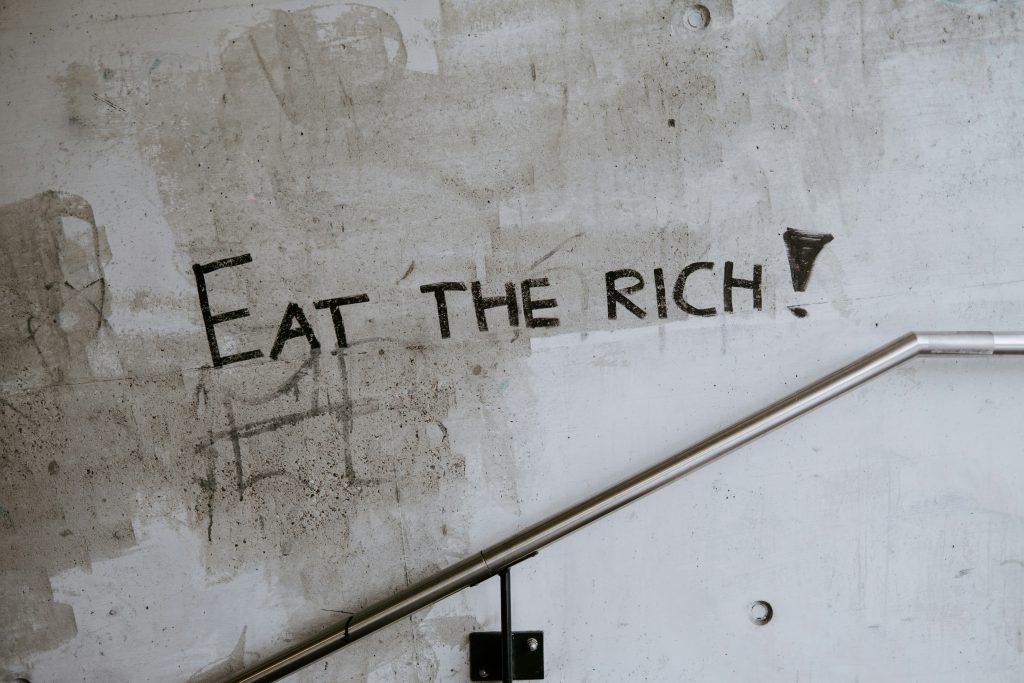 EAT THE RICH!